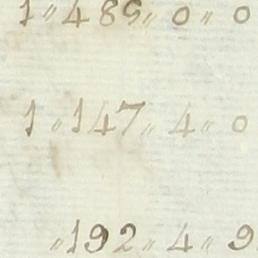 1〃489〃0〃0
1〃147〃4〃0
〃192〃4〃9